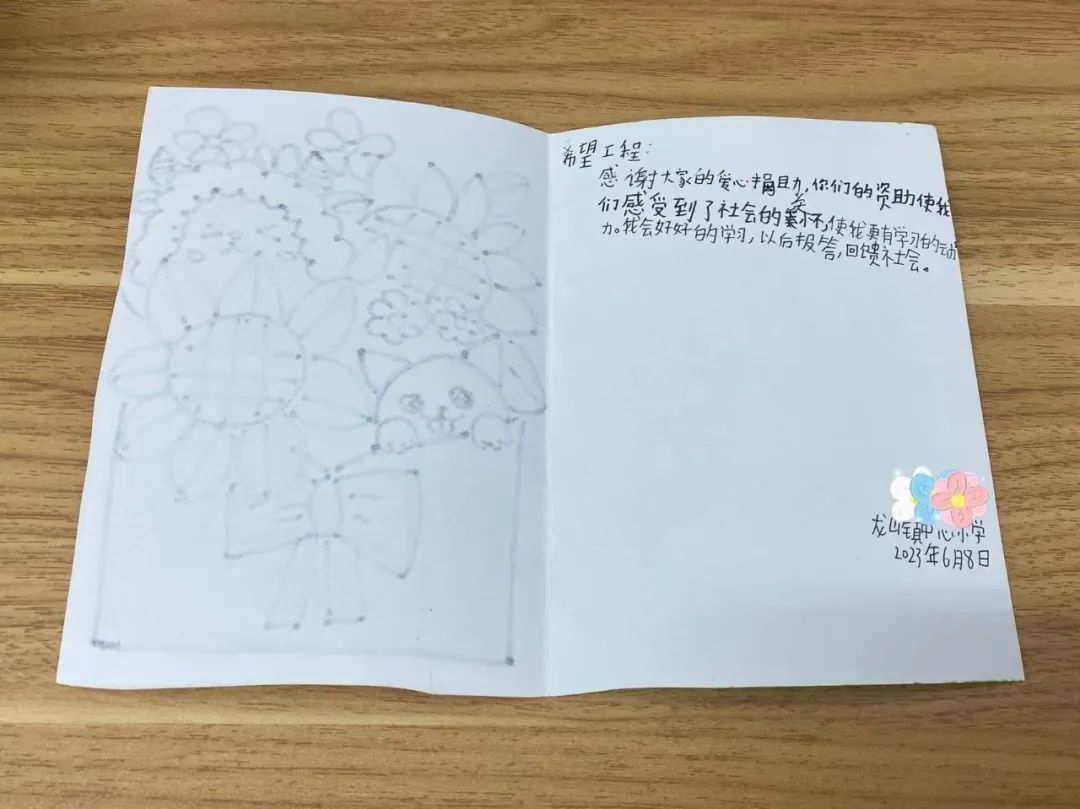 希望工程:
感谢大家的爱心捐助,你们的资助使我
们感受到了社会的关怀,使我更有学习的动
力。我会好好的学习,以后报答,回馈社会。
龙山镇中心小学
2023年6月8日